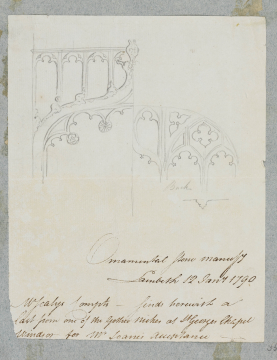 Back
Ornamental stone manufy
Lambeth 12 Jany 1790
Mr Sealys Compts — sends herewith a
Cast from one of the Gothic Niches at St Georges Chapel
Windsor for Mr Soane's